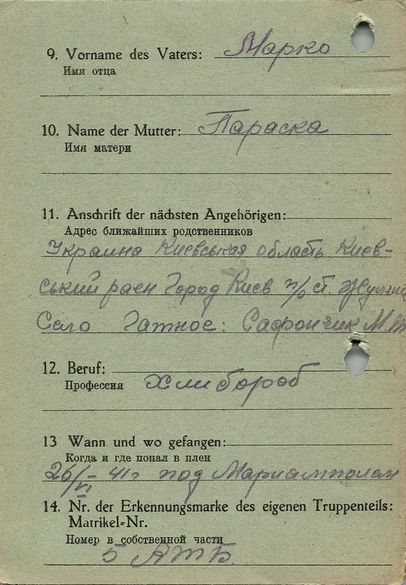 9. Vorname des Vaters: Марко
Имя отца
10. Name der Mutter: Параска
Имя матери
11. Anschrift der nächsten Angehörigen:
Адрес ближайших родственников
Украина Киевськая область Киев-
ський раен Город Киев п/о ст. Жуляны
Село Гатное: Сафончик М. М
12. Beruf: Хлибороб
Профессия
13 Wann und wo gefangen:
Когда и где попал в плен
26/VI – 41 г под Мариамполем
14. Nr. der Erkennungsmarke des eigenen Truppenteils:
Matrikel=Nr.
Номер в собственной части
5 АТБ.